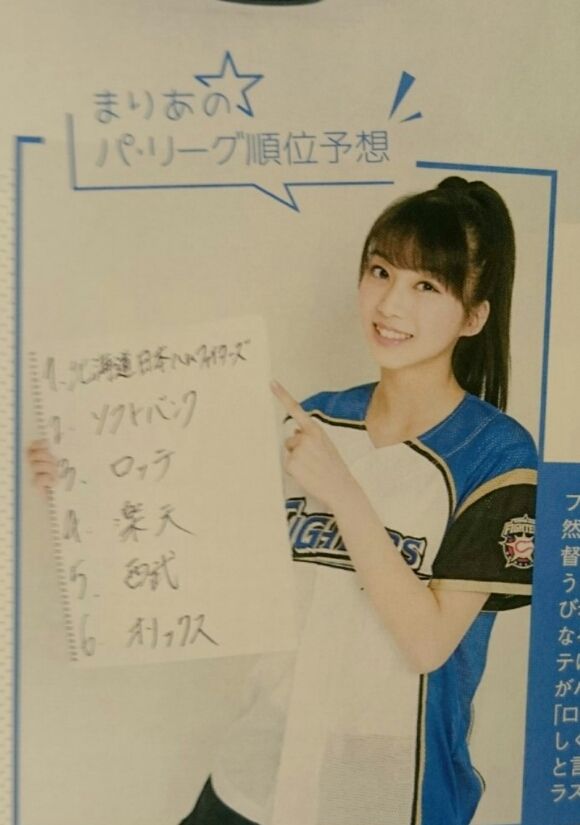 まりあの☆
パ・リーグ順位予想
1. 北海道日本ハムファイターズ
2. ソフトバンク
3. ロッテ
4. 楽天
5. 西武
6. オリックス
FIGHTERS
FIGHTERS
フ
然
督
う
び
な
テに
がパ
「ロ
しく
と言
ラス